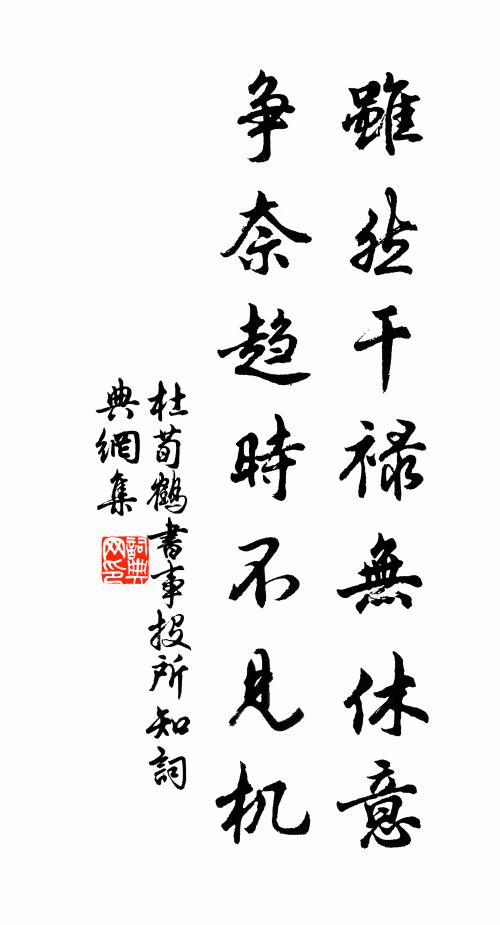 雖然干祿無休意
争奈趨時不見机
杜荀鶴書事投所知詞
典網集
詞典
网印